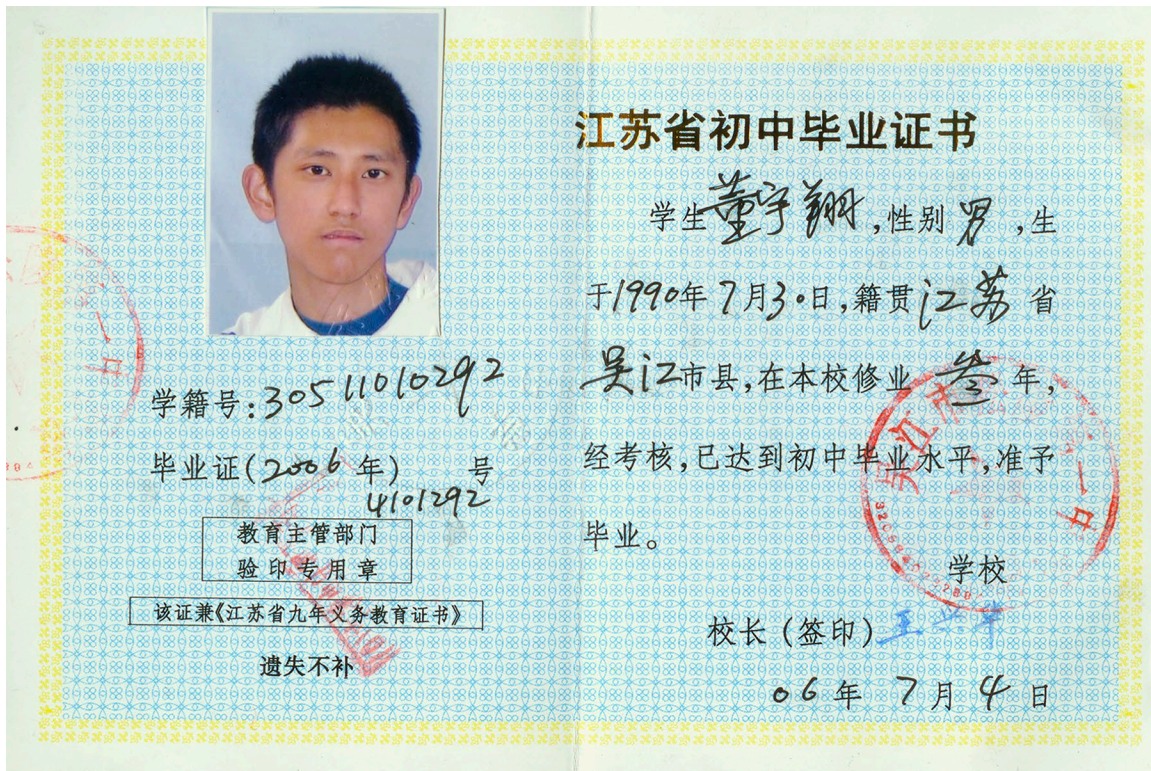 学籍号:30511010292
毕业证(2006年) 号
4101292
教育主管部门
验印专用章
该证兼《江苏省九年义务教育证书》
遗失不补
江苏省初中毕业证书
学生董宇翔,性别男,生
于1990年7月30日,籍贯江苏省
吴江市县,在本校修业叁年,
经考核,已达到初中毕业水平,准予
毕业。
学校
校长(签印)
06年7月4日